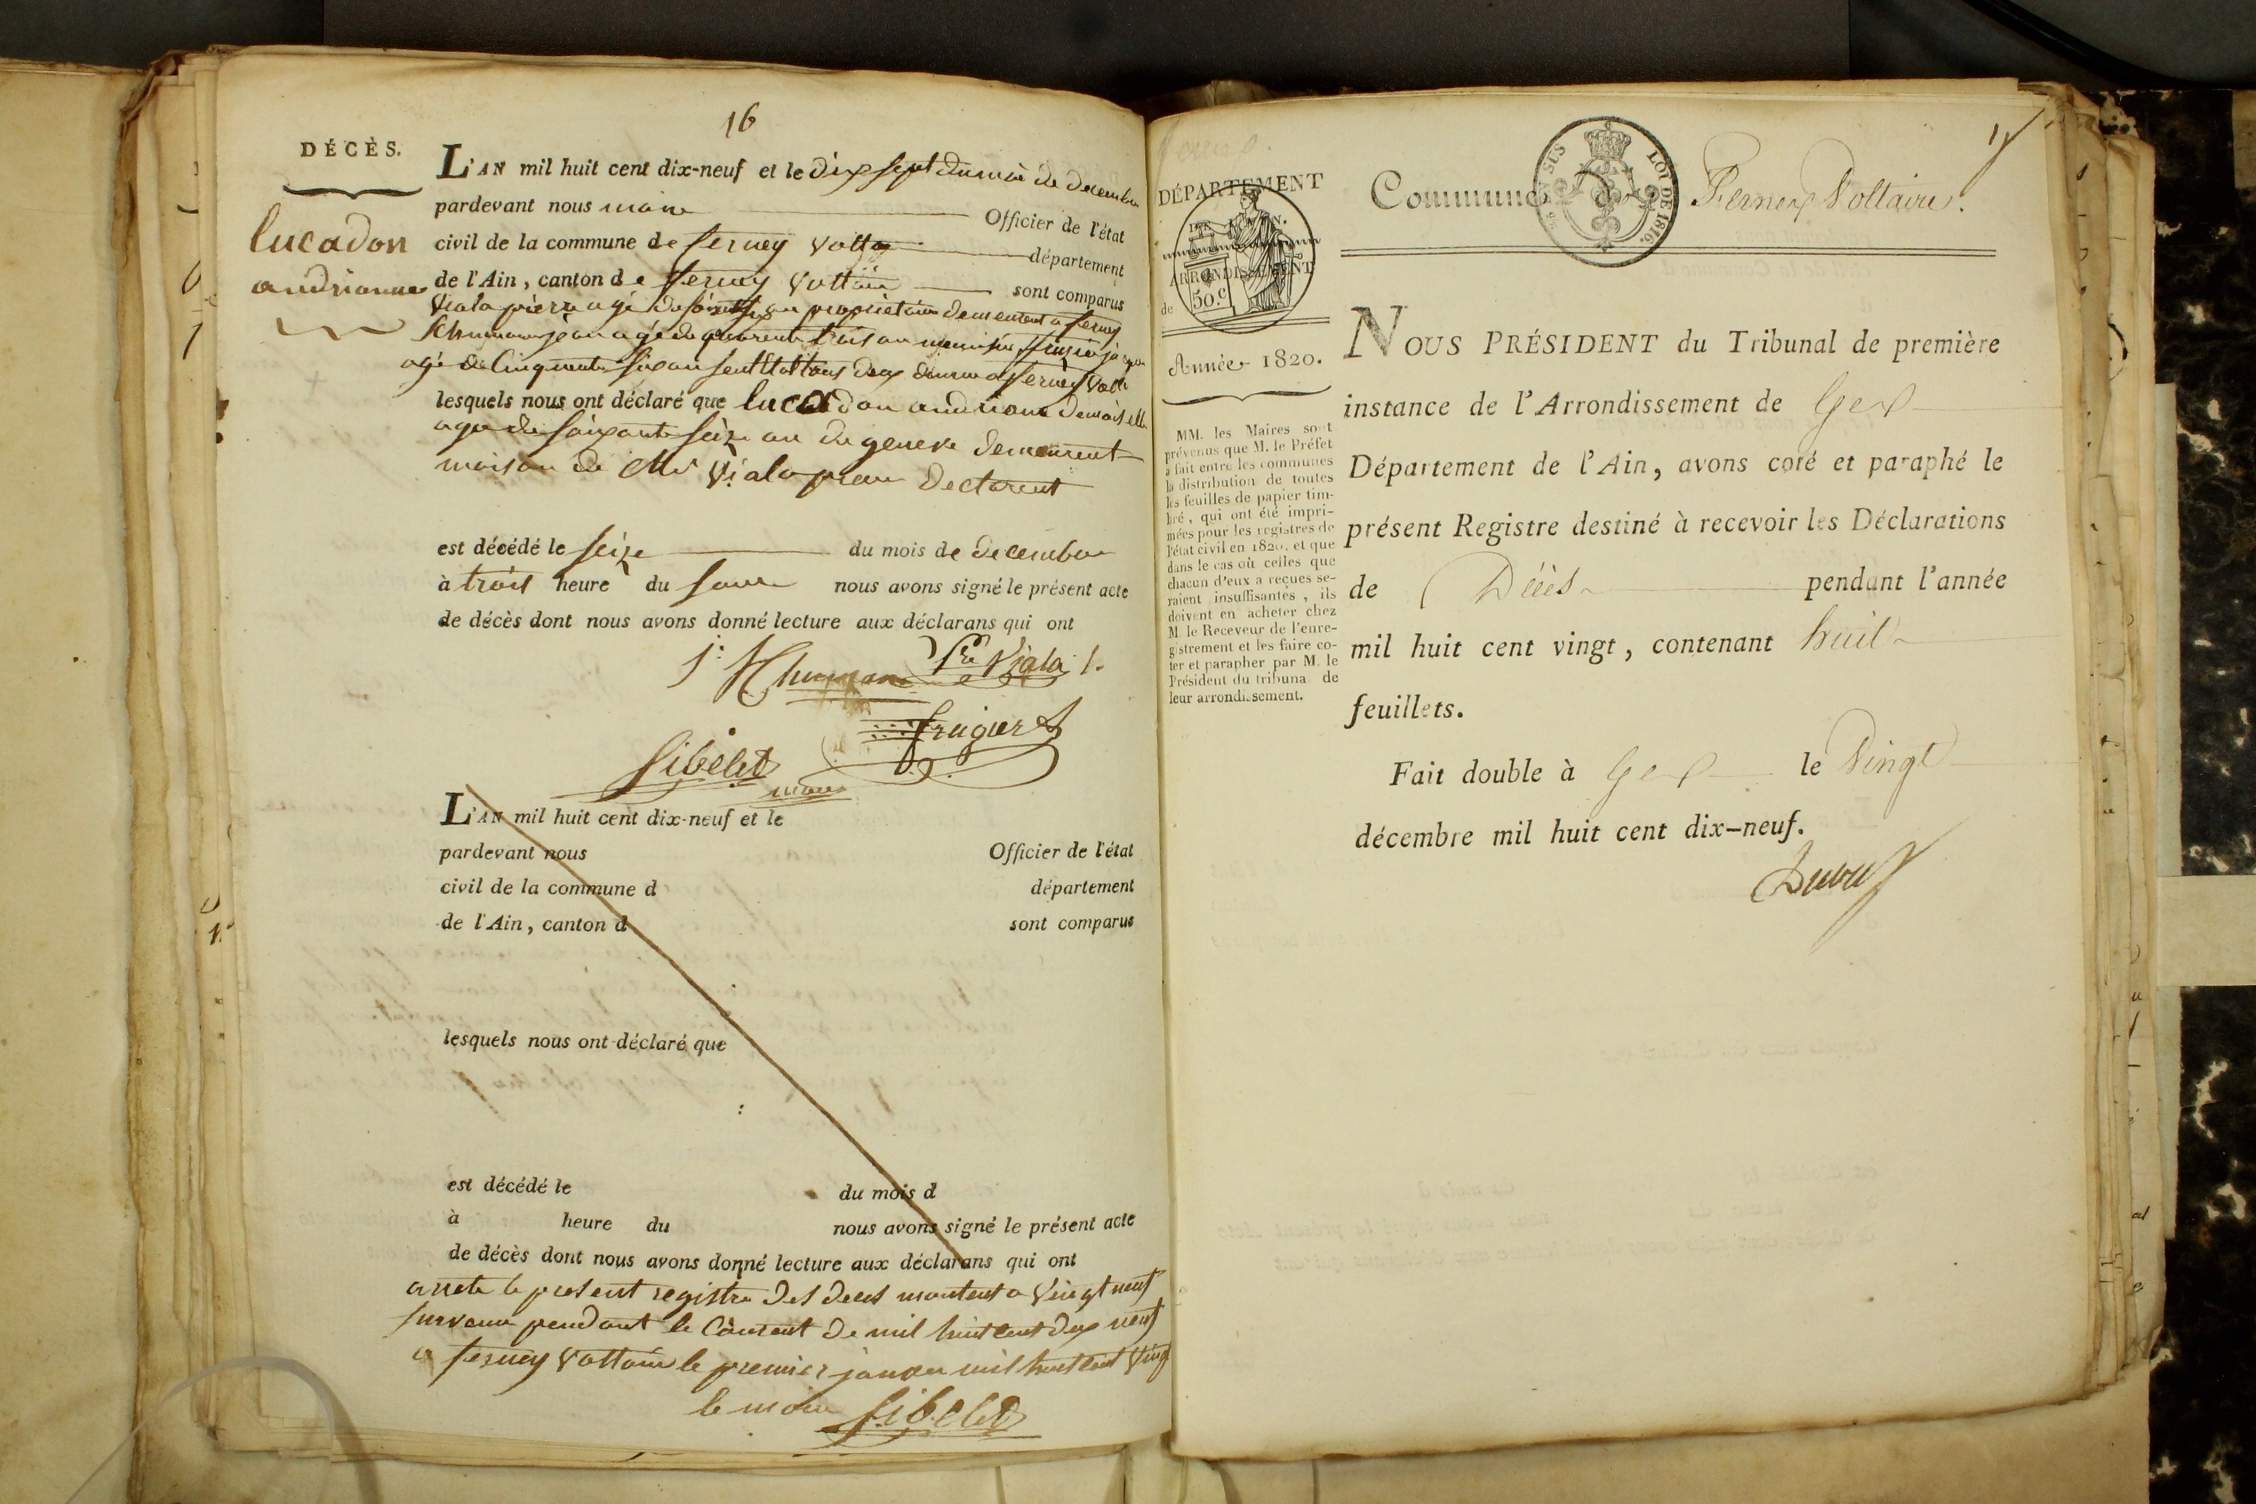 16
DÉCÈS.
lucadon
andrianne
L'AN mil huit cent dix-neuf et le dix sept du moi de decembre
pardevant nous maire Officier de l'état
civil de la commune de ferney Volta département
de l'Ain, canton de ferney Voltair sont comparus
Viala pierre agé de an propriétaire demeurent a ferney
Schumann jean agé de quarente trois an menuisier frugier
agé de Cinquente six an a ferney Volt
lesquels nous ont déclaré que lucadon andrianne demoiselle
agee de soixante seize an de geneve demeurent
maison de Mr Viala pierre declarent
est décédé le seize du mois de decembre
à trois heure du soire nous avons signé le présent acte
de décès dont nous avons donné lecture aux déclarans qui ont
J: Schumann Pre Viala
frugier
fibelet
maire
L'AN mil huit cent dix-neuf et le
pardevant nous Officier de l'état
civil de la commune d département
de l'Ain, canton d sont comparus
lesquels nous ont déclaré que
est décédé le du mois d
à heure du nous avons signé le présent acte
de décès dont nous avons donné lecture aux déclarans qui ont
arrete le present registre des deces montent a Vingt neuf
survenu pendant le Courent de mil huit cent dix neuf
a ferney Voltair le premier janvier mil huit cent Vingt
le maire fibelet
DÉPARTEMENT
DE L'AIN.
ARRONDISSEMENT
de
50.c
Année 1820.
MM. les Maires sont
prévenus que M. le Préfet
a fait entre les communes
la distribution de toutes
les feuilles de papier tim-
bré, qui ont été impri-
mées pour les registres de
l'état civil en 1820, et que
dans le cas où celles que
chacun d'eux a reçues se-
raient insuffisantes, ils
doivent en acheter chez
M. le Receveur de l'enre-
gistrement et les faire co-
ter et parapher par M. le
Président du tribunal de
leur arrondissement.
Commune de Ferney Voltaire.
LOI DE 1816.
NOUS PRÉSIDENT du Tribunal de première
instance de l'Arrondissement de Gex
Département de l'Ain, avons coté et paraphé le
présent Registre destiné à recevoir les Déclarations
de Décès pendant l'année
mil huit cent vingt, contenant huit
feuillets.
Fait double à Gex le Vingt
décembre mil huit cent dix-neuf.